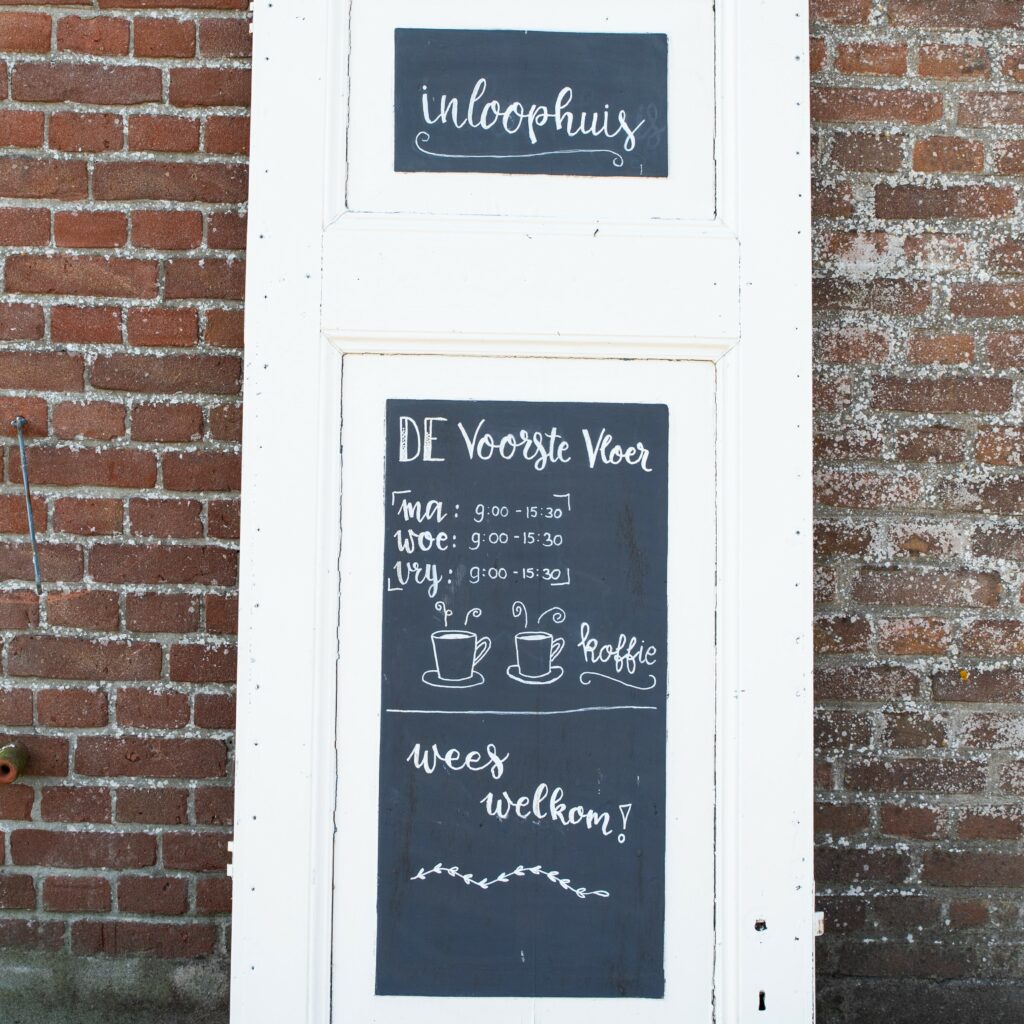 inloophuis
DE Voorste Vloer
ma: 9:00 - 15:30
woe: 9:00 - 15:30
vry: 9:00 - 15:30
koffie
wees
welkom!